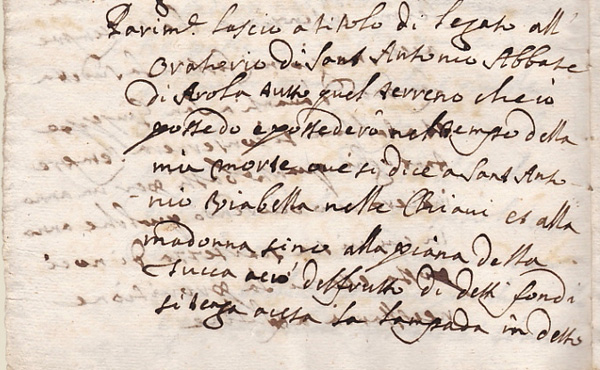 Parim.e lascio a titolo di legato all'
Oratorio di Sant Antonio Abbate
di Arola tutto quel terreno che io
possedo e possederò nel tempo della
mia morte, ove si dice a Sant Anto
nio Biabella nelle Chiavi et alla
madonna sino alla piana della
Zucca acciò del frutto di detti fondi
si tenga acesa la lampada in detto